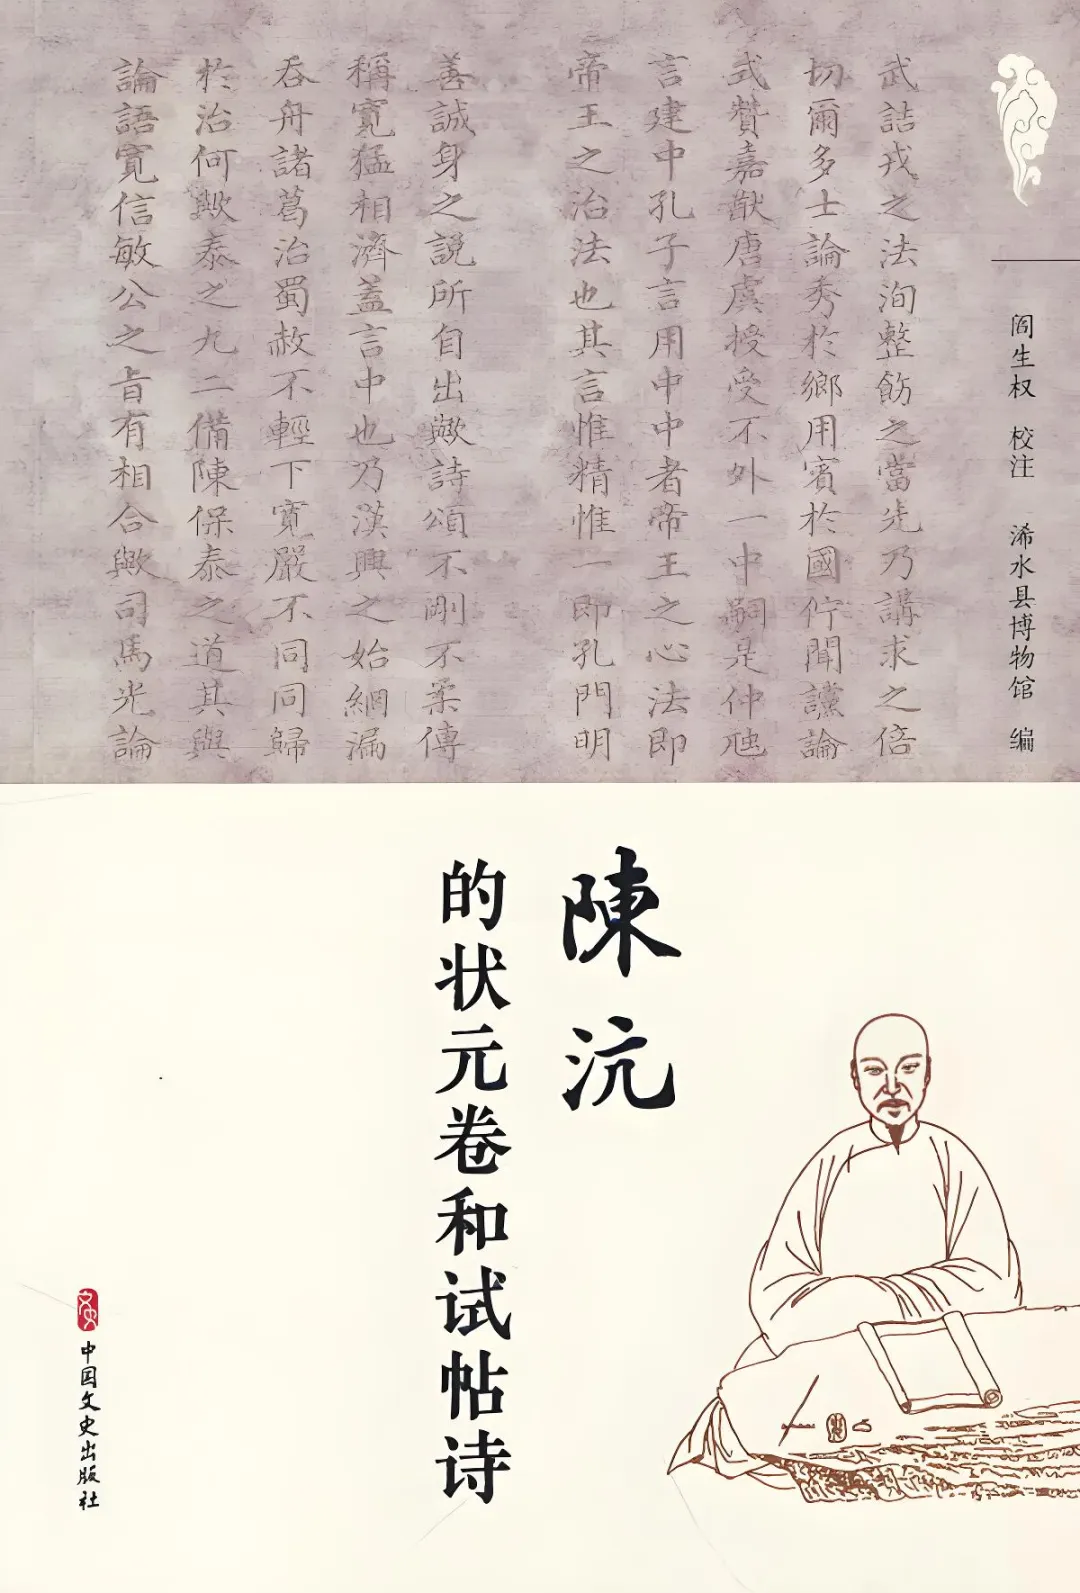 武詰戎之法洵整飭之當先乃講求之倍
切爾多士論秀於鄉用賓於國佇聞讜論
式贊嘉猷唐虞授受不外一中嗣是仲虺
言建中孔子言用中中者帝王之心法即
帝王之治法也其言惟精惟一即孔門明
善誠身之說所自出歟詩頌不剛不柔傳
稱寬猛相濟蓋言中也乃漢興之始網漏
吞舟諸葛治蜀赦不輕下寬嚴不同同歸
於治何歟泰之九二備陳保泰之道其與
論語寬信敏公之旨有相合歟司馬光論
阎生权 校注 浠水县博物馆 编
陳沆
的状元卷和试帖诗
文史
中国文史出版社